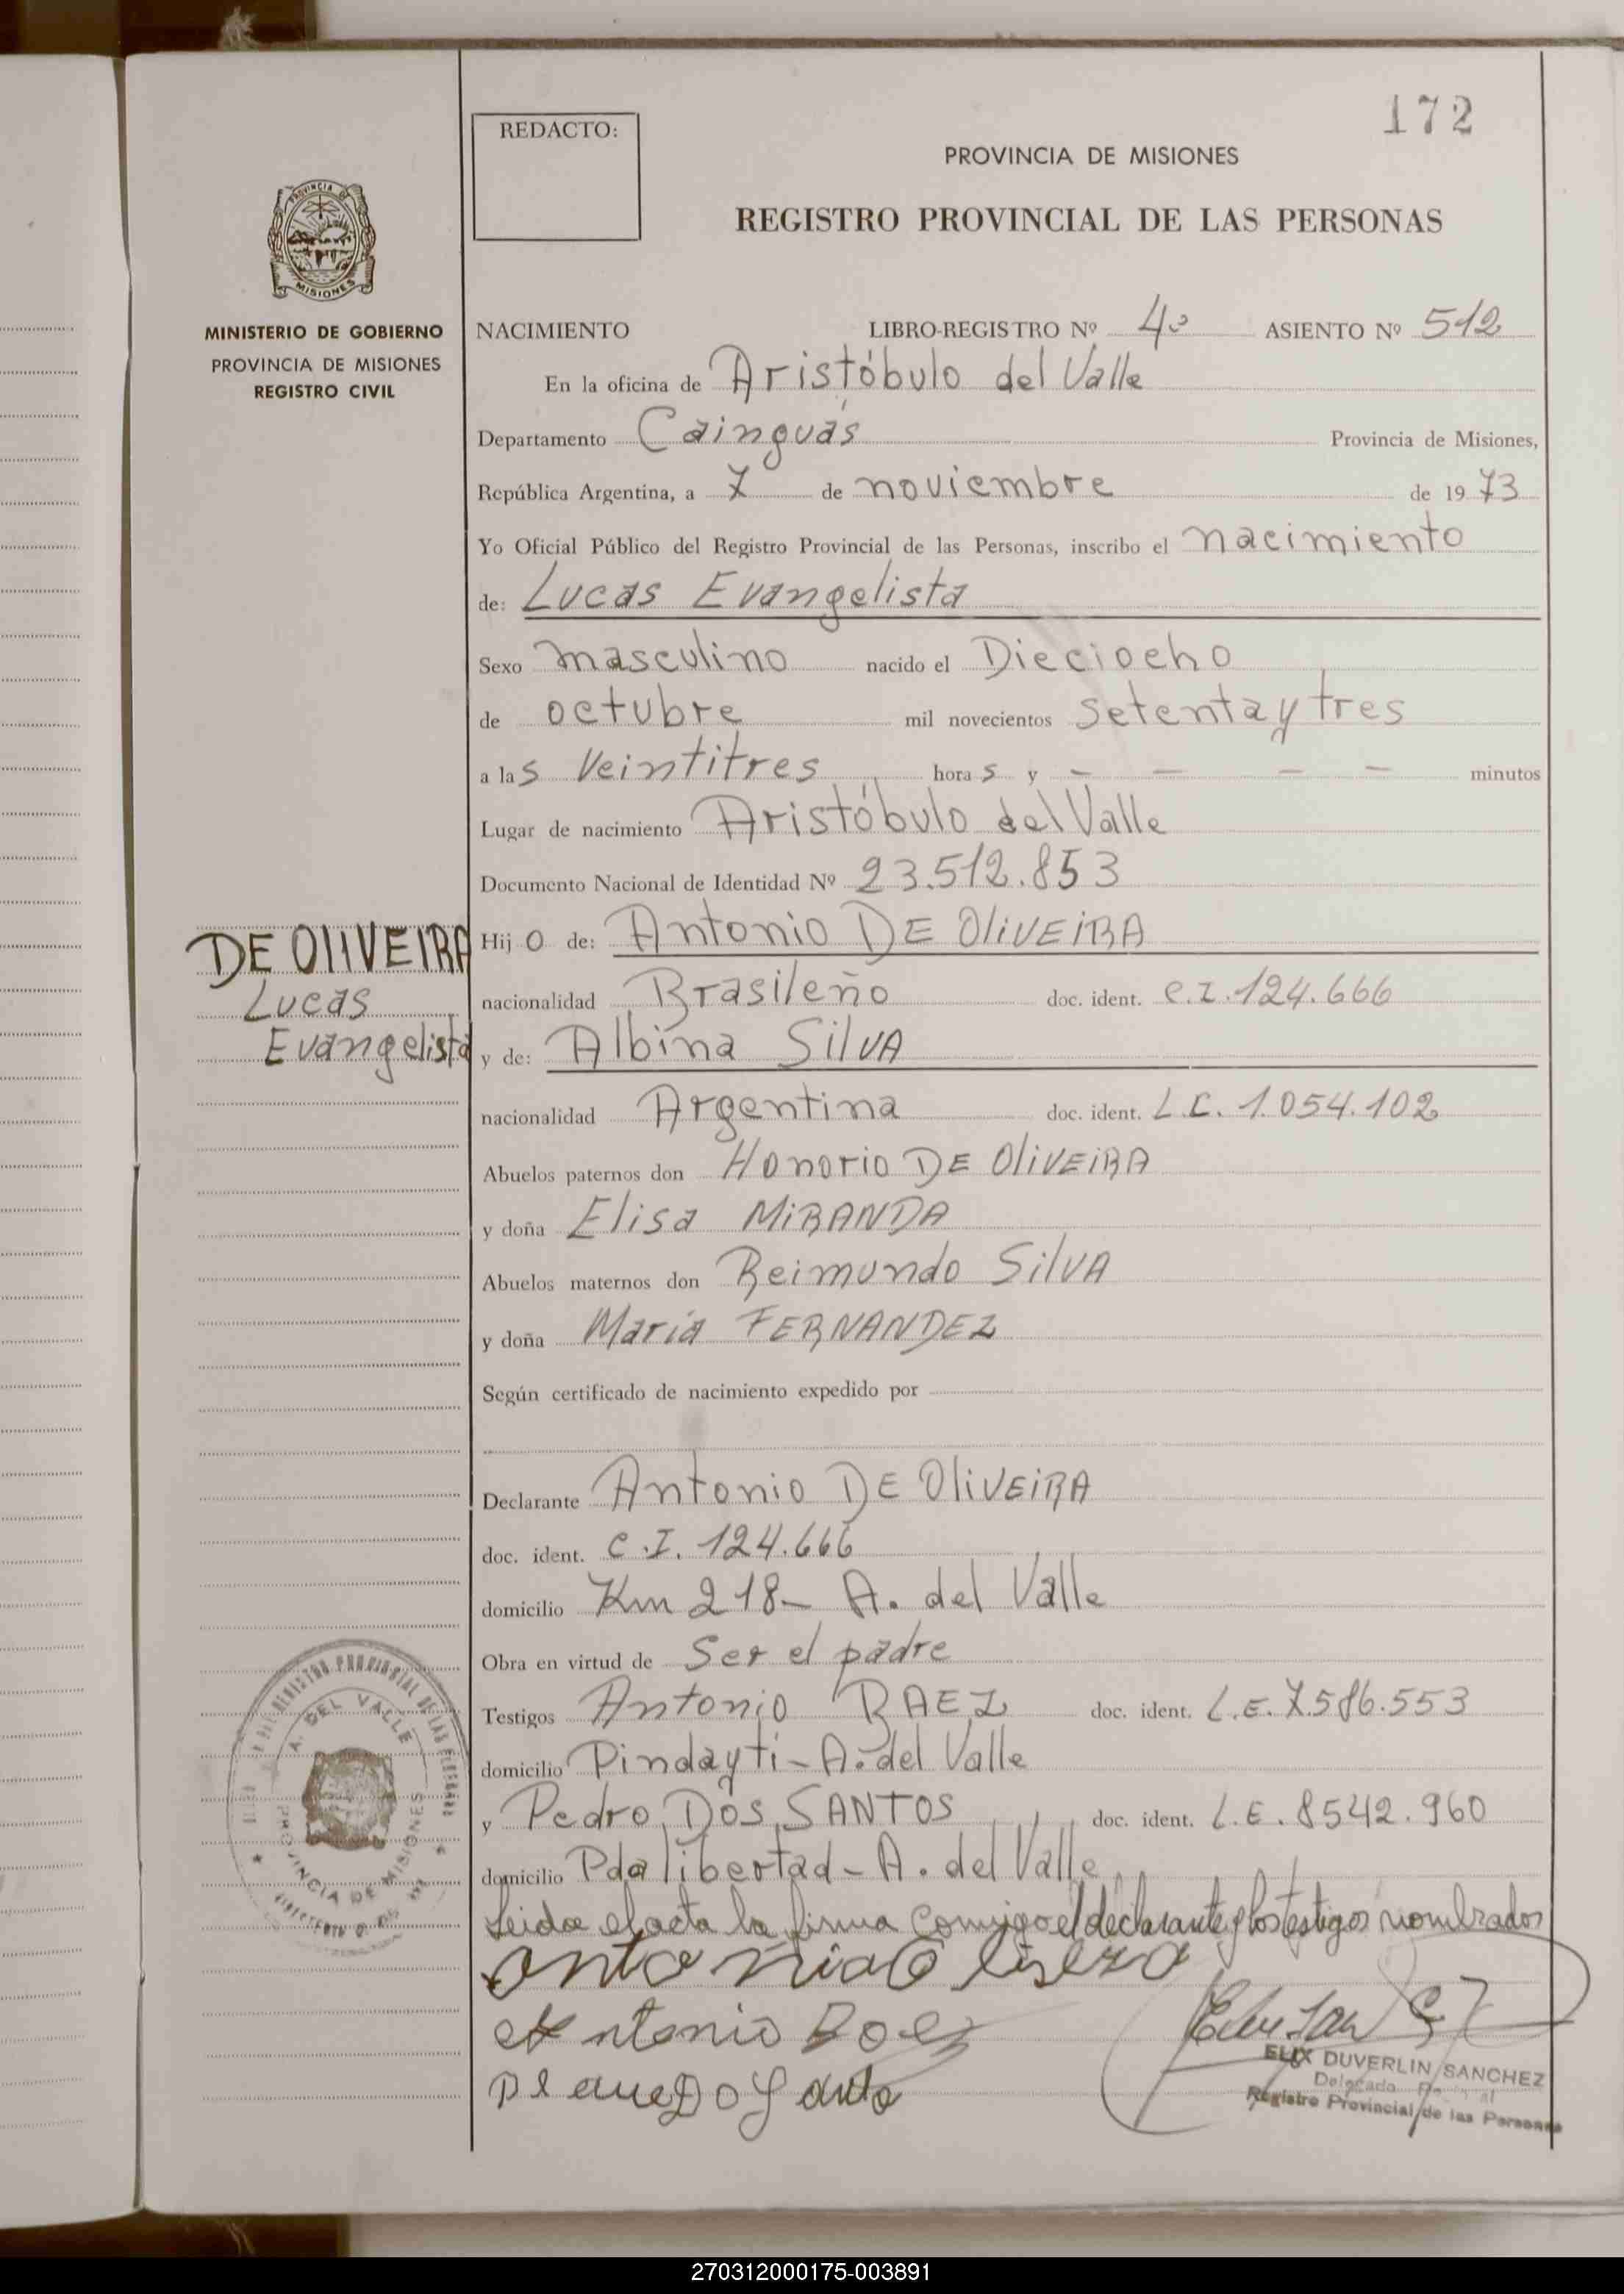 172
REDACTO:
PROVINCIA DE MISIONES
REGISTRO PROVINCIAL DE LAS PERSONAS
PROVINCIA DE
MISIONES
MINISTERIO DE GOBIERNO
PROVINCIA DE MISIONES
REGISTRO CIVIL
NACIMIENTO LIBRO-REGISTRO Nº 4º ASIENTO Nº 512
En la oficina de Aristóbulo del Valle
Departamento Cainguás Provincia de Misiones,
República Argentina, a 7 de noviembre de 1973
Yo Oficial Público del Registro Provincial de las Personas, inscribo el nacimiento
de: Lucas Evangelista
Sexo masculino nacido el Dieciocho
de octubre mil novecientos setenta y tres
a las Veintitres horas y — — — — minutos
Lugar de nacimiento Aristóbulo del Valle
Documento Nacional de Identidad Nº 23.512.853
DE OLIVEIRA
Lucas
Evangelista
Hijo de: Antonio DE OLIVEIRA
nacionalidad Brasileño doc. ident. C.I. 124.666
y de: Albina SILVA
nacionalidad Argentina doc. ident. L.C. 1.054.102
Abuelos paternos don Honorio DE OLIVEIRA
y doña Elisa MIRANDA
Abuelos maternos don Reimundo SILVA
y doña María FERNANDEZ
Según certificado de nacimiento expedido por
Declarante Antonio DE OLIVEIRA
doc. ident. C.I. 124.666
domicilio Km 218- A. del Valle
Obra en virtud de Ser el padre
Testigos Antonio BAEZ doc. ident. L.E. 7.586.553
domicilio Pindayti - A. del Valle
y Pedro DOS SANTOS doc. ident. L.E. 8542.960
domicilio Pda libertad - A. del Valle
Leida el acta la firma conmigo el declarante y los testigos nombrados
REGISTRO PROVINCIAL DE LAS PERSONAS
A. DEL VALLE
PROVINCIA DE MISIONES
Antonio Boez
ELIX DUVERLIN SANCHEZ
Delegado
Registro Provincial de las Personas
270312000175-003891